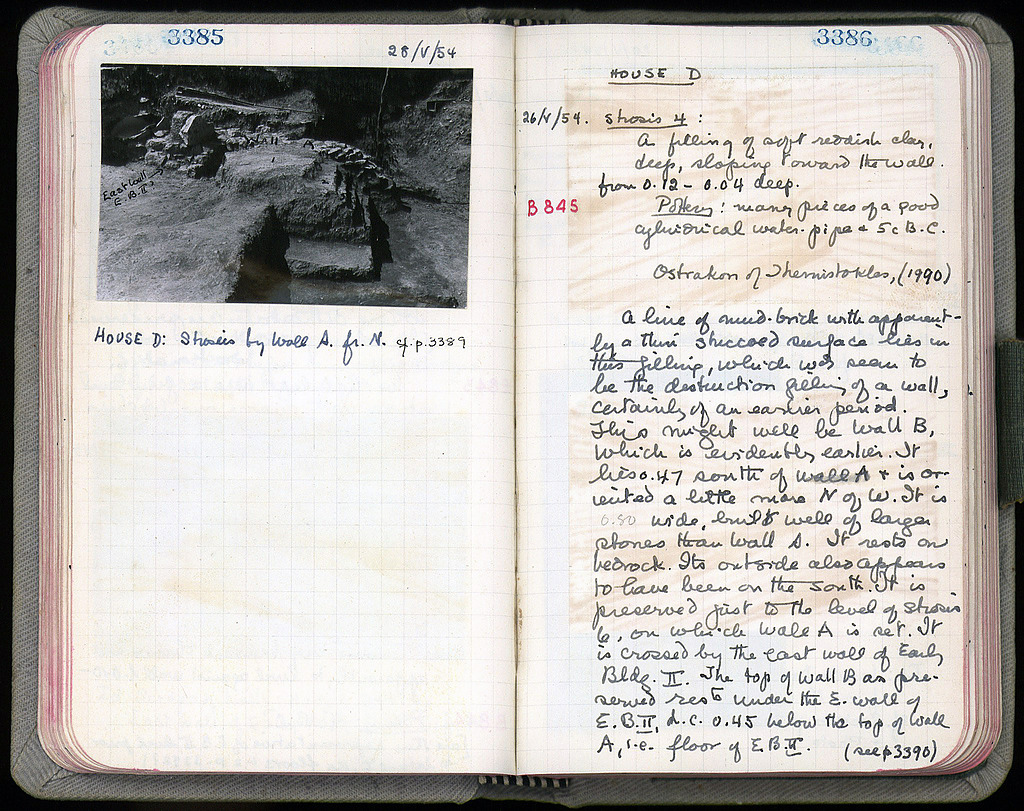 3385
28/V/54
Wall A
East wall
E.B.II
HOUSE D: Strosis by Wall A. fr. N. cf. p. 3389
3386
HOUSE D
26/V/54. Strosis 4 :
A filling of soft reddish clay,
deep, sloping toward the wall.
from 0.12 - 0.04 deep.
B 845
Pottery: many pieces of a good
cylindrical water-pipe & 5c B.C.
Ostrakon of Themistokles, (1990)
A line of mud-brick with apparent-
ly a thin stuccoed surface lies in
this filling, which was seen to
be the destruction filling of a wall,
certainly of an earlier period.
This might well be Wall B,
which is evidently earlier. It
lies 0.47 south of wall A & is or-
iented a little more N of W. It is
0.80 wide, built well of larger
stones than Wall A. It rests on
bedrock. Its outside also appears
to have been on the south. It is
preserved just to the level of strosis
6, on which Wall A is set. It
is crossed by the east wall of Early
Bldg. II. The top of wall B as pre-
served rests under the E. wall of
E.B.II, d.c. 0.45 below the top of wall
A, i.e. floor of E.B.II.
(see p 3390)